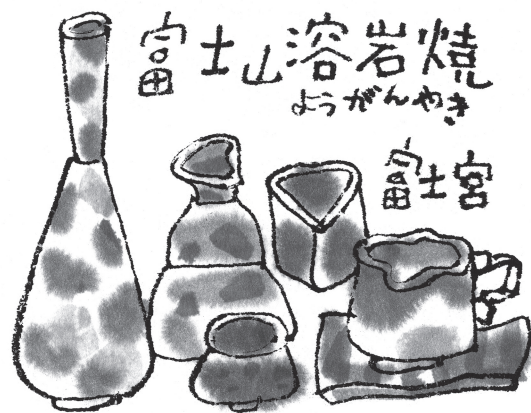 富士山溶岩焼
ようがんやき
富士宮